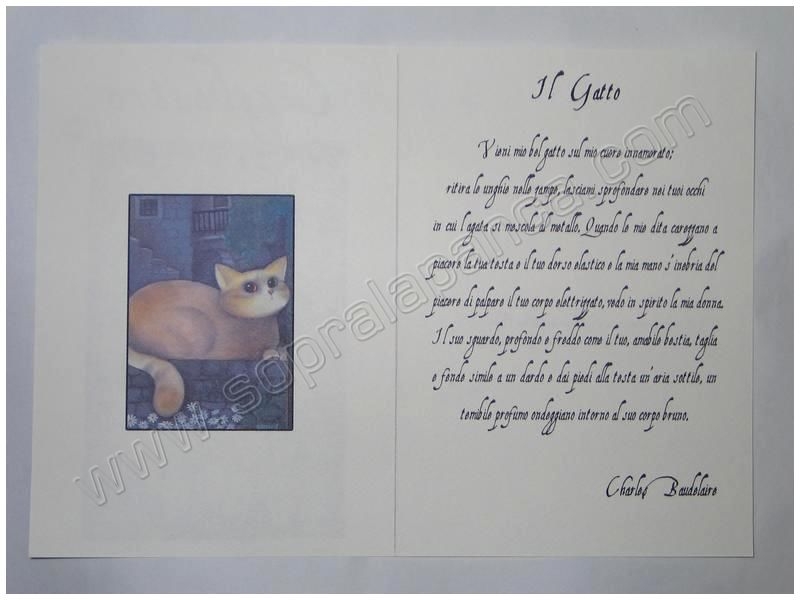 Il Gatto
Vieni mio bel gatto sul mio cuore innamorato;
ritira le unghie nelle zampe, lasciami sprofondare nei tuoi occhi
in cui l'agata si mescola al metallo. Quando le mie dita carezzano a
piacere la tua testa e il tuo dorso elastico e la mia mano s'inebria del
piacere di palpare il tuo corpo elettrizzato, vedo in spirito la mia donna.
Il suo sguardo, profondo e freddo come il tuo, amabile bestia, taglia
e fende simile a un dardo e dai piedi alla testa un'aria sottile, un
temibile profumo ondeggiano intorno al suo corpo bruno.
Charles Baudelaire
www.sopralapanca.com